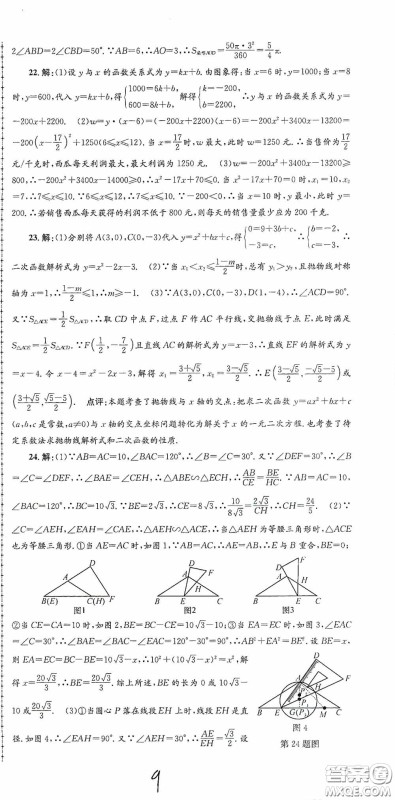 2∠ABD=2∠CBD=50°.∵AB=6,∴AO=3,∴S=50π·3²/360=5/4π.
22.解:(1)设y与x的函数关系式为y=kx+b.由图象得:当x=6时,y=1000;当x=8
时,y=600,代入y=kx+b,得{1000=6k+b, 600=8k+b,解得{k=-200, b=2200,∴y与x的函数关系式为y=
-200x+2200. (2)w=y·(x-6)=(-200x+2200)(x-6)=-200x²+3400x-13200=
-200(x-17/2)²+1250(6≤x≤12).当x=17/2时,w最大,此时w=1250元.∴当售价为17/2
元/千克时,西瓜每天利润最大,最大利润为1250元. (3)w=-200x²+3400x-13200≥
800,∴-200x²+3400x-14000≥0,∴x²-17x+70≤0.当x²-17x+70=0时,x₁=10,x₂=
7.∴7≤x≤10.∵6≤x≤12,∴7≤x≤10.∵-200<0,∴当x=10时,y最小,此时y=
200.∴若销售西瓜每天获得的利润不低于800元,则每天的销售量最少应为200千克.
23.解:(1)分别将A(3,0),C(0,-3)代入y=x²+bx+c,得{0=9+3b+c, -3=c.∴{b=-2, c=-3.∴
二次函数解析式为y=x²-2x-3. (2)∵当x₁<x₂≤(1-m)/2时,总有y₁>y₂,且抛物线对称
轴为x=1,∴(1-m)/2≤1,∴m≥-1. (3)∵A(3,0),C(0,-3),D(1,-4),∴∠ACD=90°.
又∵S△ACE=1/2S△ACD,∴取CD中点F,过点F作AC平行线,交抛物线于点E,此时满足
S△ACE=1/2S△ACD.∵F(1/2,-7/2)且直线AC的解析式为y=x-3,∴直线EF的解析式为y
=x-4.令x-4=x²-2x-3,解得x₁=(3+√5)/2,x₂=(3-√5)/2.∴E((3-√5)/2,(-√5-5)/2)或
((3+√5)/2,(√5-5)/2). 点评:本题考查了抛物线与x轴的交点:把求二次函数y=ax²+bx+c
(a,b,c是常数,a≠0)与x轴的交点坐标问题转化为解关于x的一元二次方程.也考查了待
定系数法求抛物线解析式和二次函数的性质.
24.解:(1)∵AB=AC=10,∠BAC=120°,∴∠B=∠C=30°.又∵∠DEF=30°,∴∠B
=∠C=∠DEF,∴∠BAE=∠CEH,∴△ABE∽△ECH,∴AB/CE=BE/HC.∵AB=AC=10,
∠BAC=120°,∴BC=10√3.∵BE=2√3,∴CE=8√3,∴10/8√3=2√3/CH,∴CH=24/5. (2)∵
∠C=∠AEH,∠EAH=∠CAE,∴△AEH∽△ACE,∴当△AEH为等腰三角形时,△ACE
也为等腰三角形.①当AE=AC时,如图1,∵AB=AC,∴AE=AB,∴E与B重合,BE=0;
D A B(E) C(H) F
图1
D F A H B E C
图2
D F A H B E C
图3
②当CE=CA=10时,如图2,BE=BC-CE=10√3-10;③当EA=EC时,如图3,∠EAC
=∠C=30°,∴∠BAE=∠BAC-∠EAC=120°-30°=90°,∴AB²+AE²=BE².设BE=x,
则EA=EC=BC-BE=10√3-x,∴10²+(10√3-x)²=x²,解
得x=20√3/3,BE=20√3/3.综上所述,BE的长为0或10√3-
10或20√3/3. (3)①当圆心P落在线段EH上时,线段EH是直
径.如图4,∴∠EAH=90°.又∵∠AEH=30°,∴AE/EH=√3/2.设
图4
第24题图
9